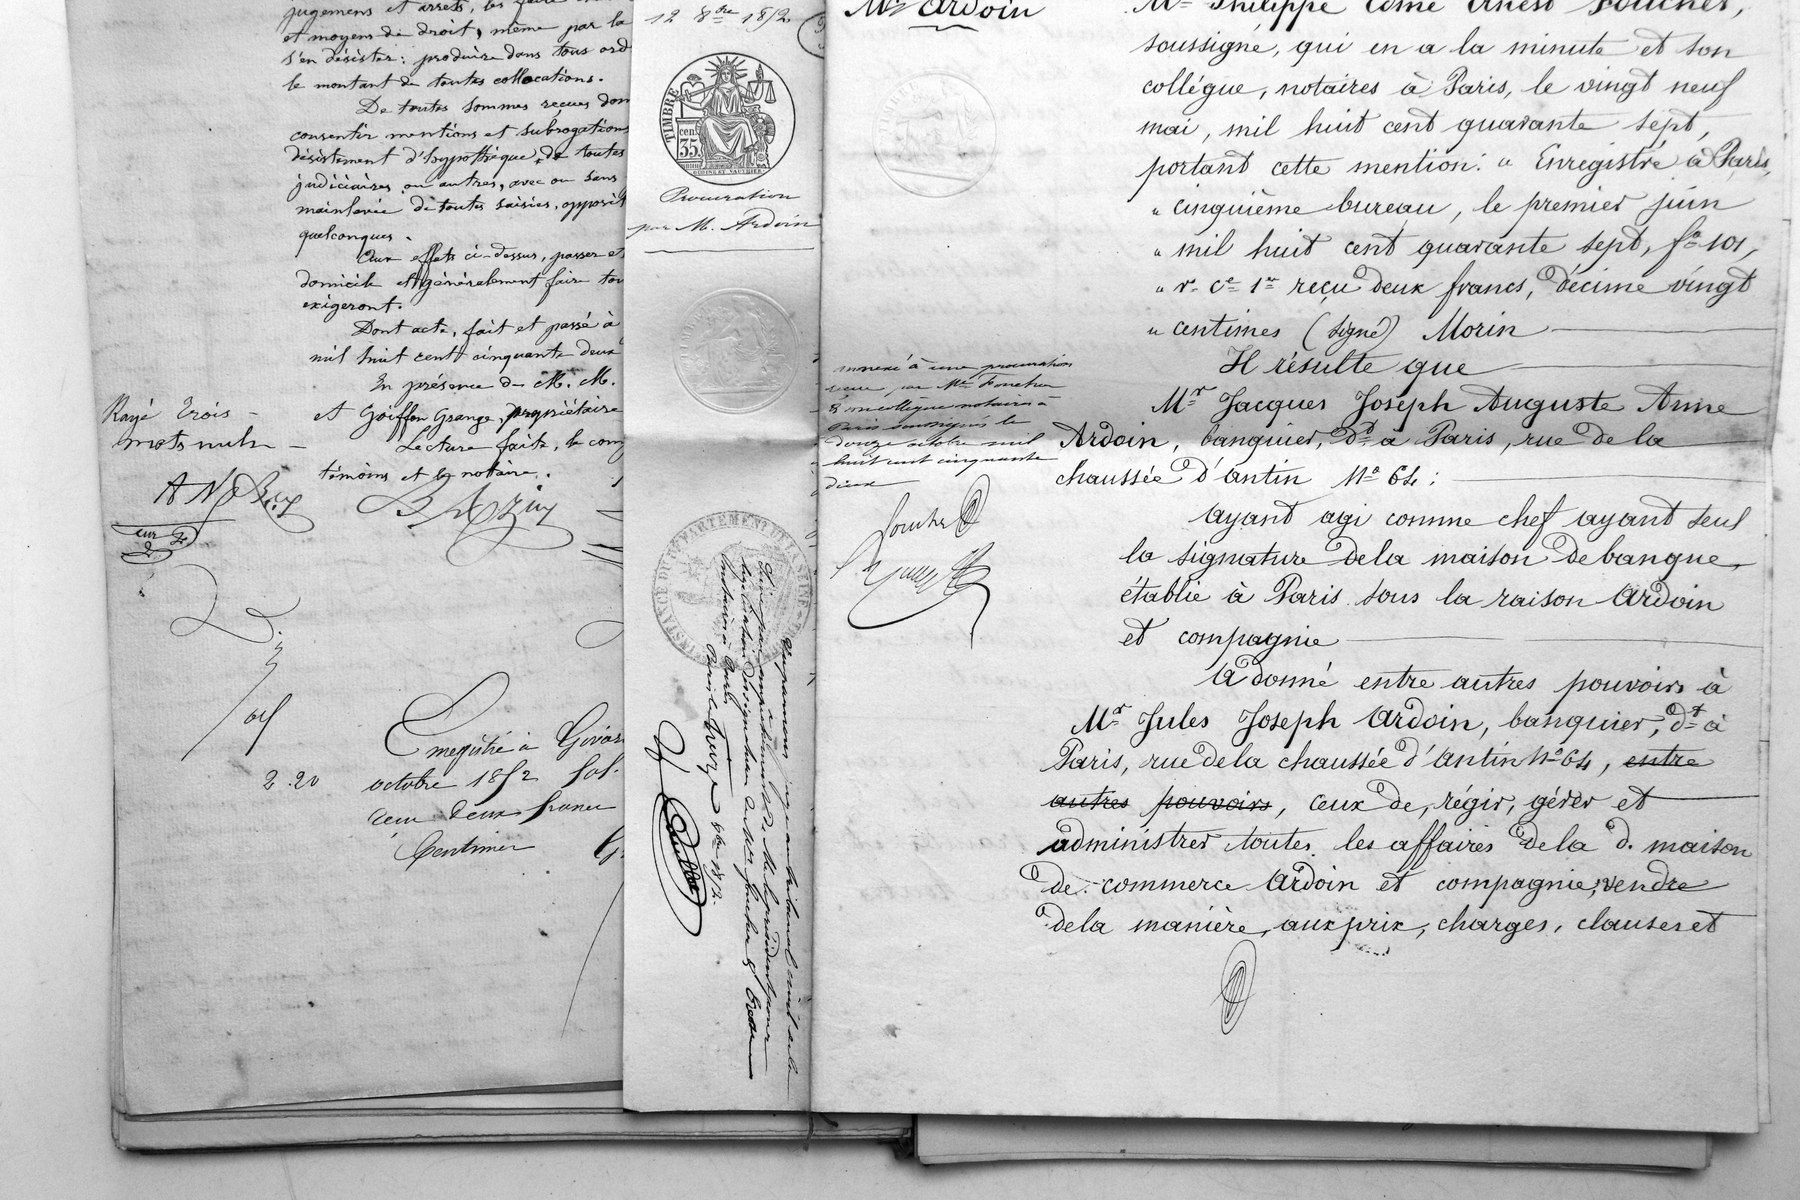 jugemens et arrets, les faire
et moyens de droit, même par la
s'en désister: produire dans tous ord
le montant de toutes collocations.
De toutes sommes reçues don
consentir mentions et subrogations
désistement d'hypothèque, de toutes
judiciaires ou autres, avec ou sans
mainlevée de toutes saisies, opposit
quelconques.
Aux effets ci-dessus, passer et
domicile et généralement faire tou
exigeront.
Dont acte, fait et passé à
mil huit cent cinquante deux
En présence de M. M.
et Goiffon Grange, propriétaire
Lecture faite, le com
témoins et le notaire.
Rayé trois
mots nuls
Enregistré à Givors
octobre 1852 fol.
reçu deux francs
centimes
2.20
12 8bre 1852
TIMBRE
35 cen.
Procuration
par M. Ardoin
INSTANCE DU DEPARTEMENT DE LA SEINE
Vu par nous juge au tribunal civil de la
Seine par empêchement de M. le président pour
légalisation de la signature de Mes Foucher &
notaires à Paris
Paris le treize 8bre 1852.
Mr Ardoin
annexé à une procuration
reçue par Me Foucher
& son collègue notaires à
Paris soussignés le
douze octobre mil
huit cent cinquante
deux
Foucher
Me Philippe Come Ernest Foucher,
soussigné, qui en a la minute et son
collégue, notaires à Paris, le vingt neuf
mai, mil huit cent quarante sept,
portant cette mention: " Enregistré à Paris,
" cinquième bureau, le premier juin
" mil huit cent quarante sept, fo 101,
" vo ce 1re reçu deux francs, décime vingt
" centimes (signé) Morin
Il résulte que
Mr Jacques Joseph Auguste Anne
Ardoin, banquier, dt à Paris, rue de la
chaussée d'antin No 64;
ayant agi comme chef ayant seul
la signature dela maison de banque,
établie à Paris sous la raison Ardoin
et compagnie
A donné entre autres pouvoirs à
Mr Jules Joseph Ardoin, banquier, dt à
Paris, rue dela chaussée d'antin No 64, entre
autres pouvoirs, ceux de, régir, gérer et
administrer toutes les affaires dela d. maison
de commerce Ardoin et compagnie, vendre
dela manière, aux prix, charges, clauses et